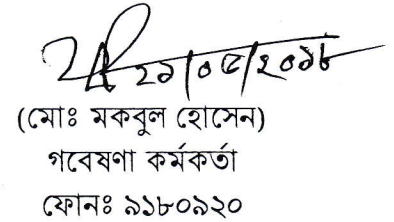 ২১/০৫/২০১৮
(মোঃ মকবুল হোসেন)
গবেষণা কর্মকর্তা
ফোনঃ ৯১৮০৯২০